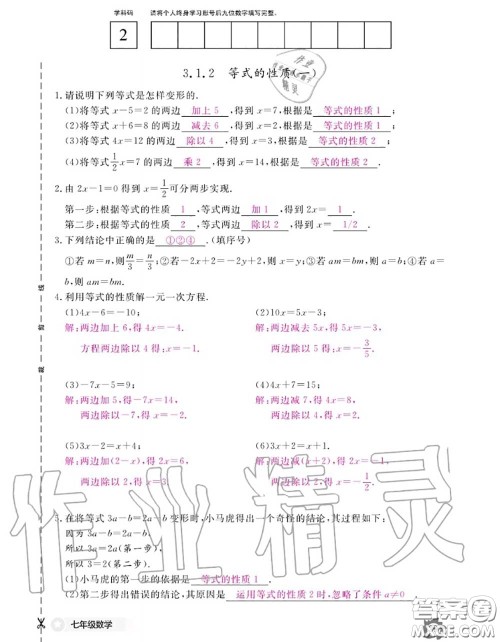 学科码 请将个人终身学习形号后九位数字填写完整。
2
3.1.2 等式的性质(一)
1.请说明下列等式是怎样变形的.
(1)将等式x-5=2的两边 加上5 ,得到x=7,根据是 等式的性质1 ;
(2)将等式x+6=8的两边 减去6 ,得到x=2,根据是 等式的性质1 ;
(3)将等式4x=12的两边 除以4 ,得到x=3,根据是 等式的性质2 ;
(4)将等式1/2x=7的两边 乘2 ,得到x=14,根据是 等式的性质2 .
2.由2x-1=0得到x=1/2可分两步实现.
第一步:根据等式的性质 1 ,等式两边 加1 ,得到2x= 1 ;
第二步:根据等式的性质 2 ,等式两边 除以2 ,得到x= 1/2 .
3.下列结论中正确的是 ①②④ .(填序号)
①若m=n,则m/3=n/3;②若-2x+2=-2y+2,则x=y;③若am=bm,则a=b;④若a=b,则am=bm.
4.利用等式的性质解一元一次方程.
(1)4x-6=-10; (2)10x=5x-3;
解:两边加上6,得4x=-4. 解:两边减去5x,得5x=-3.
方程两边除以4得:x=-1. 两边除以5,得x=-3/5.
(3)-7x-5=9; (4)4x+7=15;
解:两边加5,得-7x=14, 解:两边减7,得4x=8,
两边除以-7,得x=-2. 两边除以4,得x=2.
(5)3x=2+x; (6)3x=x+4.
解:两边加(2-x),得2x=6, 解:两边减(x+2),得2x=2,
两边除以2,得x=3. 两边除以2,得x=1.
5.在将等式3a-b=2a-b变形时,小马虎得出一个奇怪的结论,其过程如下:
因为3a-b=2a-b,
所以3a=2a(第一步),
所以3=2(第二步).
(1)小马虎的第一步的依据是 等式的性质1 .
(2)第二步得出错误的结论,其原因是 运用等式的性质2时,忽略了条件a≠0 .
七年级数学
作业精灵
答案圈